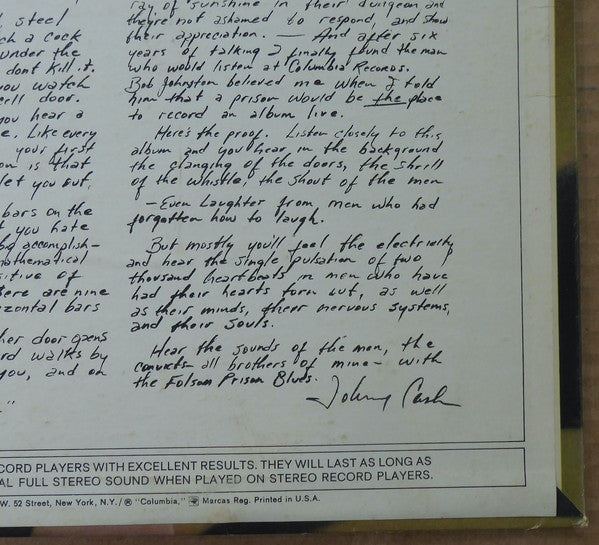 steel
ch a cock
under the
dont kill it.
you watch
cell door.
you hear a
e. Like every
your first
on is that
let you out,
bars on the
t you hate
big accomplish-
mathematical
sitive of
ere are nine
izontal bars
her door opens
rd walks by
you, and on
"
ray of sunshine in their dungeon and
they're not ashamed to respond, and show
their appreciation. — And after six
years of talking I finally found the man
who would listen at Columbia Records.
Bob Johnston believed me when I told
him that a prison would be the place
to record an album live.
Here's the proof. Listen closely to this
album and you hear in the background
the clanging of the doors, the shrill
of the whistle, the shout of the men
— Even Laughter from men who had
forgotten how to laugh.
But mostly you'll feel the electricity
and hear the single pulsation of two
thousand heartbeats in men who have
had their hearts torn out, as well
as their minds, their nervous systems,
and their souls.
Hear the sounds of the men, the
convicts - all brothers of mine - with
the Folsom Prison Blues.
Johnny Cash
CORD PLAYERS WITH EXCELLENT RESULTS. THEY WILL LAST AS LONG AS
AL FULL STEREO SOUND WHEN PLAYED ON STEREO RECORD PLAYERS.
W. 52 Street, New York, N.Y. / ® "Columbia," Marcas Reg. Printed in U.S.A.